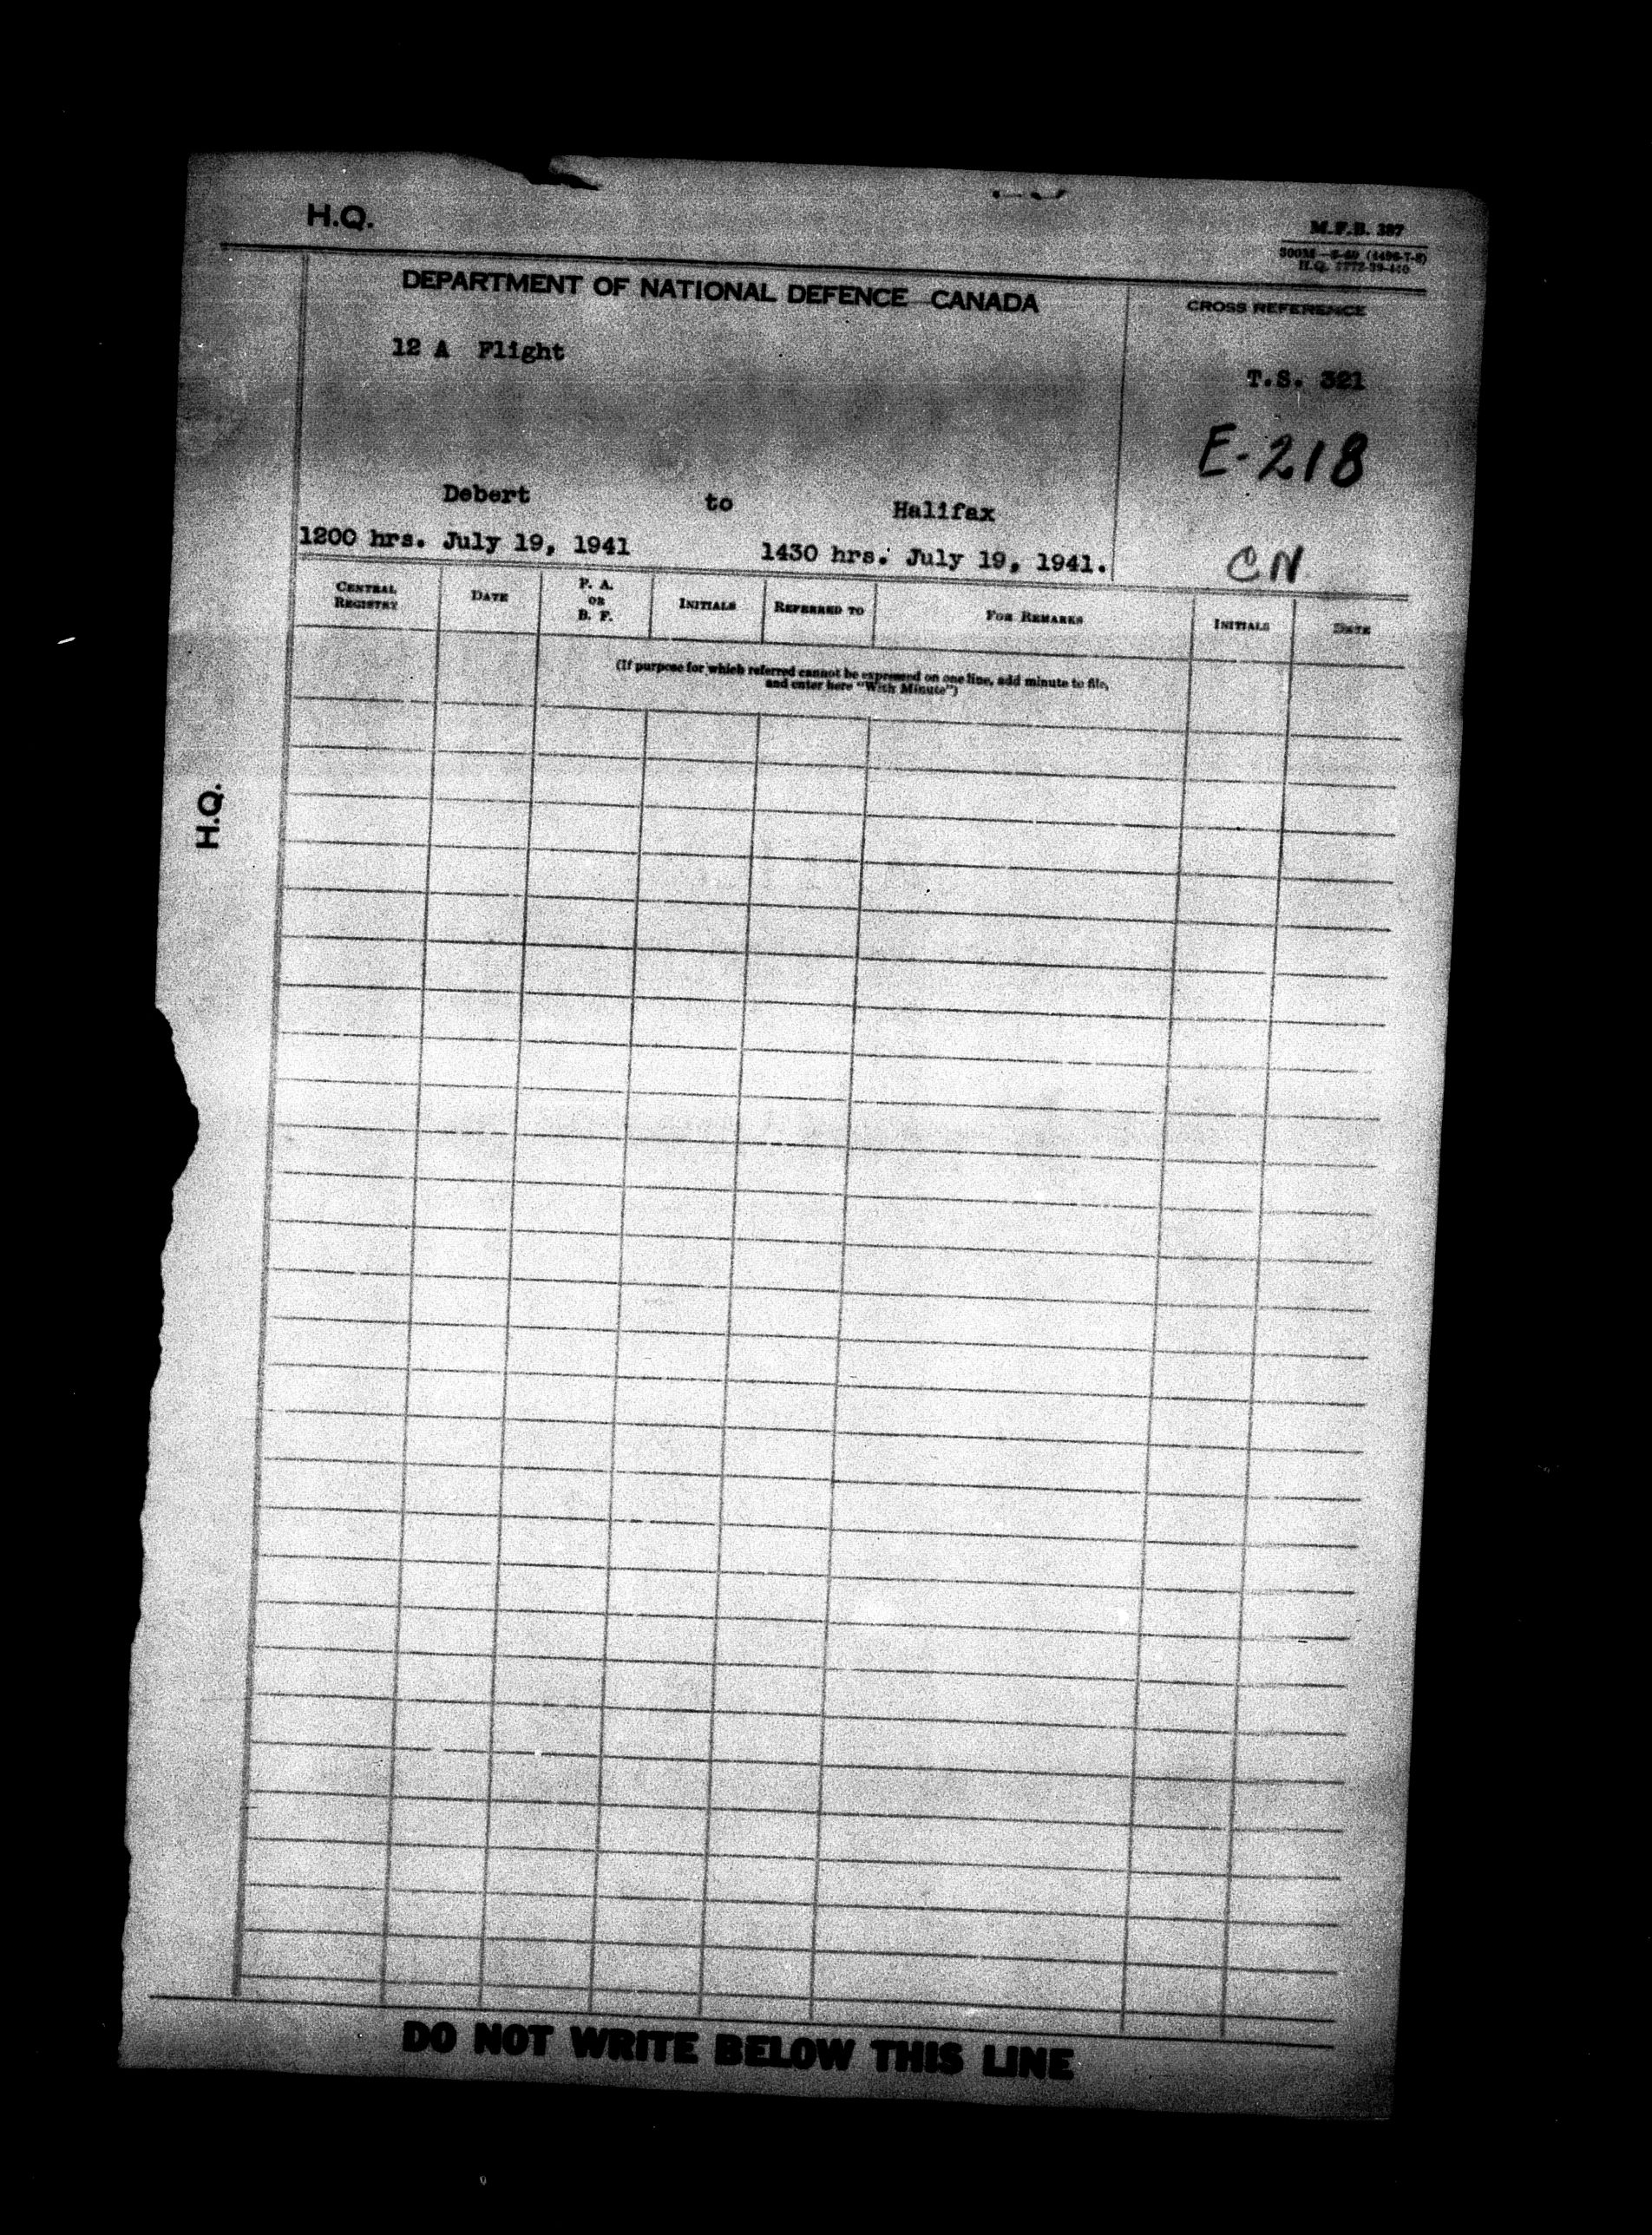 H.Q.
M.F.B. 387
DEPARTMENT OF NATIONAL DEFENCE CANADA
CROSS REFERENCE
12 A Flight
T.S. 321
E-218
Debert to Halifax
1200 hrs. July 19, 1941 1430 hrs. July 19, 1941.
CN
CENTRAL REGISTRY
DATE
P. A. OR B. F.
INITIALS
REFERRED TO
FOR REMARKS
INITIALS
DATE
(If purpose for which referred cannot be expressed on one line, add minute to file,
and enter here "With Minute")
H.Q.
DO NOT WRITE BELOW THIS LINE